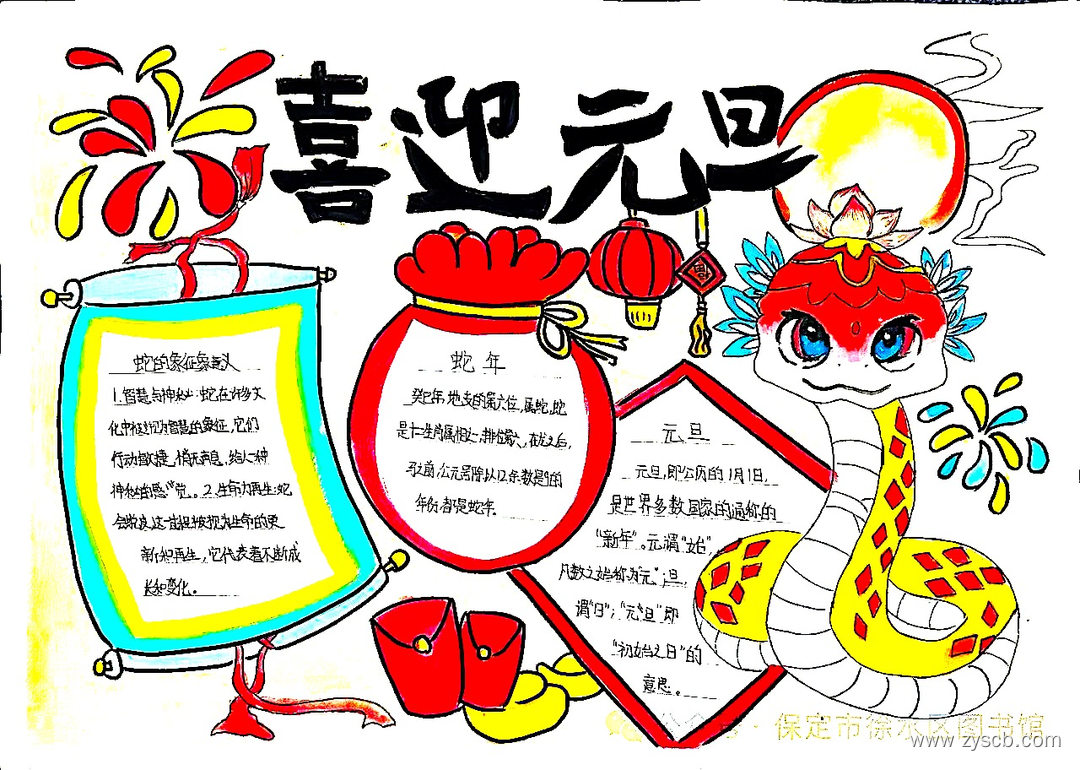 喜迎元旦
蛇的象征象意义
1.智慧与神秘:蛇在许多文
化中被视为智慧的象征,它们
行动敏捷、悄无声息,给人一种
神秘的感觉。2.生命力再生:蛇
会蜕皮,这一过程被视为生命的更
新和再生,它代表着不断成
长和变化。
蛇年
癸巳年,地支的第六位,属蛇,蛇
是十二生肖属相之一,排第六,在龙之后,
马之前,公元年除以12余数是9的
年份都是蛇年。
元旦
元旦,即公历的1月1日,
是世界多数国家的通称的
"新年"。元谓"始",
凡数之始称为"元";旦,
谓"日";"元旦"即
"初始之日"的
意思。
福
保定市徐水区图书馆
www.zyscb.com